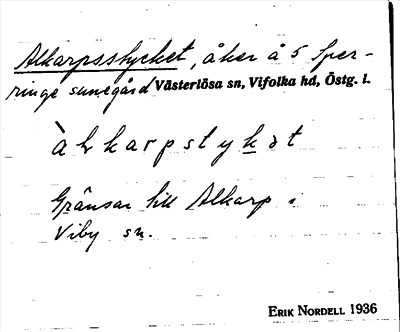 Alkarpsstycket, åker å 5 Sper-
ringe sunegård Västerlösa sn, Vifolka hd, Östg. l.
àlkarpstykət
Gränsar till Alkarp i
Viby sn.
ERIK NORDELL 1936